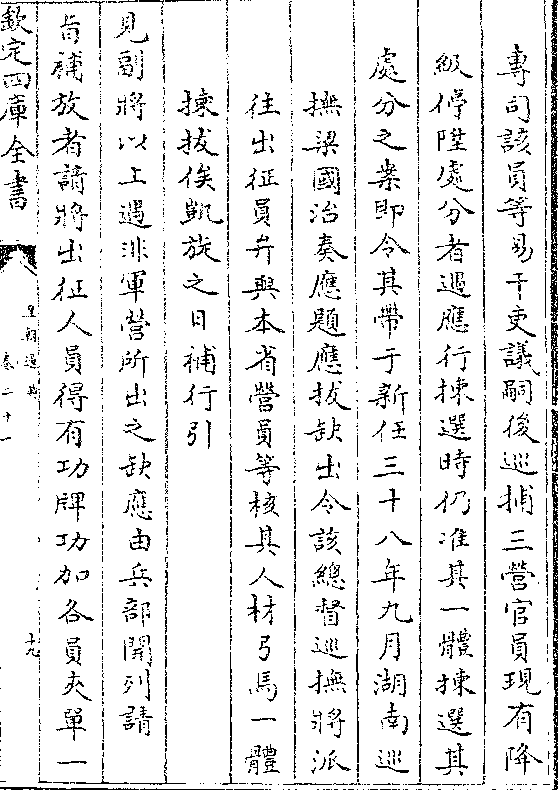 專司該員等易干吏議嗣後巡捕三營官員現有降
級停陞處分者遇應行揀選時仍准其一體揀選其
處分之案即令其帶于新任三十八年九月湖南巡
撫梁國治奏應題應拔缺出令該總督巡撫將派
往出征員弁與本省營員等核其人材弓馬一體
揀拔俟凱旋之日補行引
見副將以上遇非軍營所出之缺應由兵部開列請
旨補放者請將出征人員得有功牌功加各員夾單一
欽定四庫全書
皇朝通典
卷二十一
十九